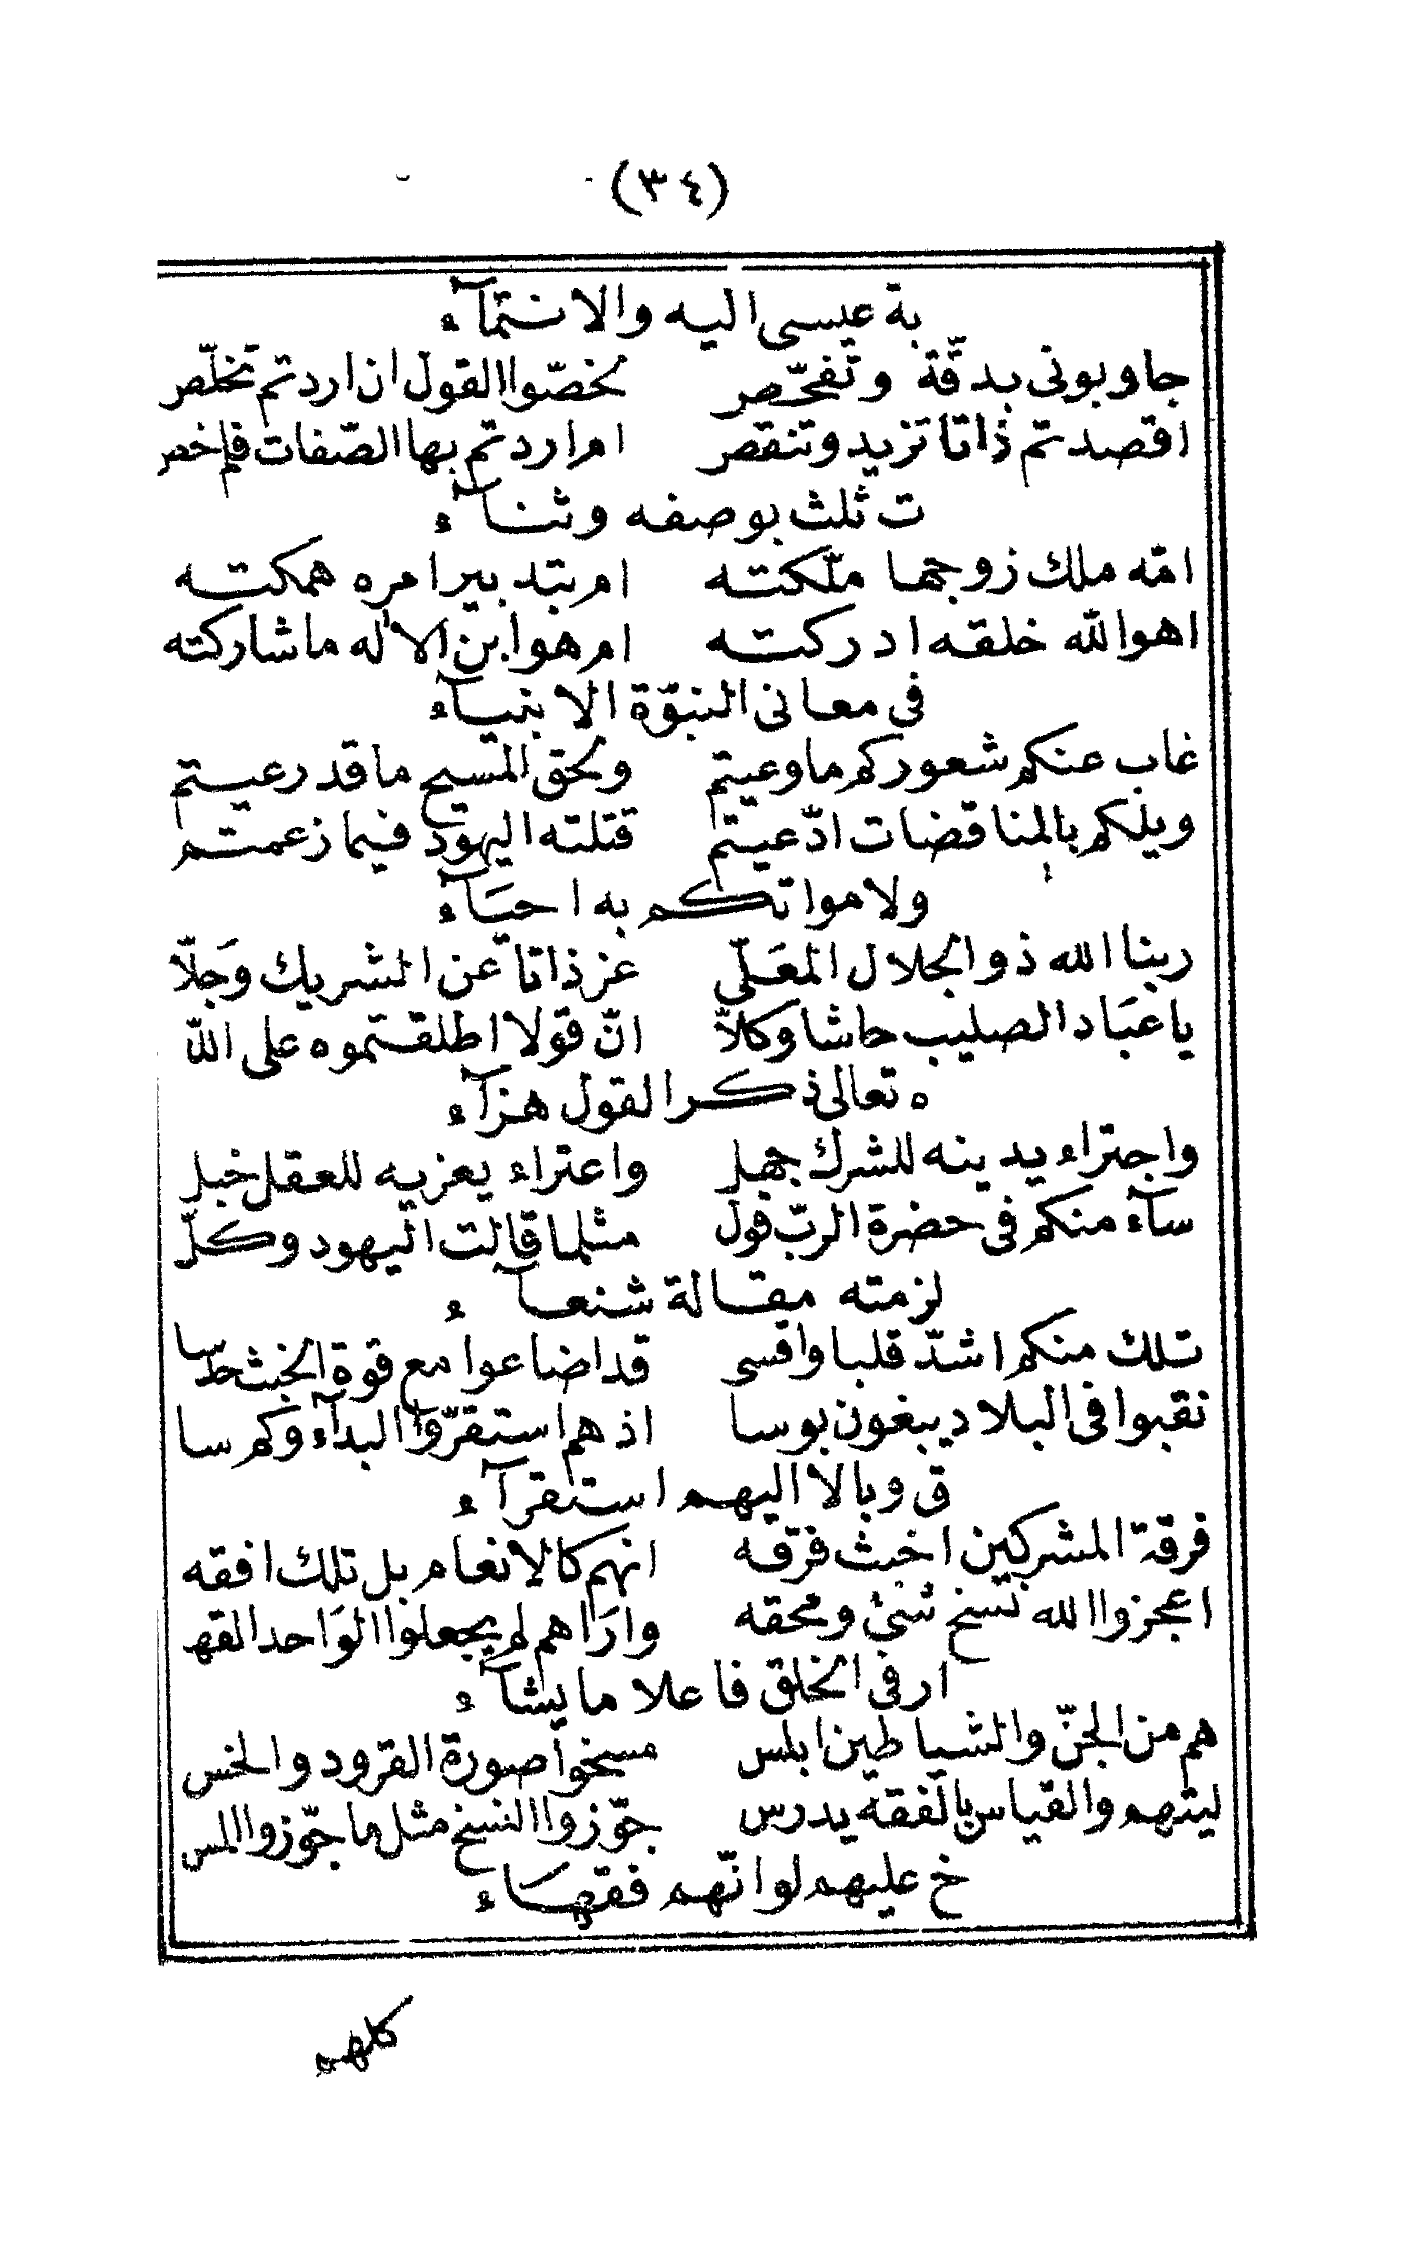 (٣٤)
بة عيسى اليه والانتمآء
جاوبونى بدقّة وتفحّص نخصّوا القول ان اردتم تخلّص
اقصدتم ذاتا تزيد وتنقص ام اردتم بها الصّفات فلم خص
ت ثلث بوصفه وثنآء
امّه ملك زوجها ملّكته ام بتدبير امره همكته
اهو الله خلقه ادركته ام هو ابن الاله ماشاركته
فى معانى النبوّة الانبيآء
غاب عنكم شعوركم ماوعيتم وبحق المسيح ماقد رعيتم
ويلكم بالمناقضات ادّعيتم قتلته اليهود فيما زعمتم
ولامواتكم به احيَآء
ربنا الله ذو الجلال المعَلّى عز ذاتاً عن الشريك وَجلّا
ياعبَاد الصليب حاشا وكلاّ انّ قولا اطلقتموه على اللّ
ه تعالى ذكرا لقول هزآء
واجتراء يدينه للشرك جهل واعتراء يعزيه للعقل خبل
سآء منكم فى حضرة الربّ قول مثلما قالت اليهود وكلّ
لزمته مقالة شنعآء
تلك منكم اشدّ قلبا واقسى قد اضاعوا مع قوة الخبث حدسا
نقبوا فى البلاد يبغون بوسا اذ هم استقرّوا البدآء وكم سا
ق وبالا اليهم استقرآء
فرقة المشركين اخبث فرّقه انهم كالانعام بل تلك افقه
اعجزوا الله نسخ شئ ومحقه وارَاهم لم يجعلوا الوَاحد القه
ار فى الخلق فاعلا مايشآء
هم من الجنّ والشياطين ابلس مسخوا صورة القرود والخس
ليتهم والقياس بالفقه يدرس جوّزوا النسخ مثل ماجوّزوا المس
خ عليهم لو انّهم فقهَاء
كلهم